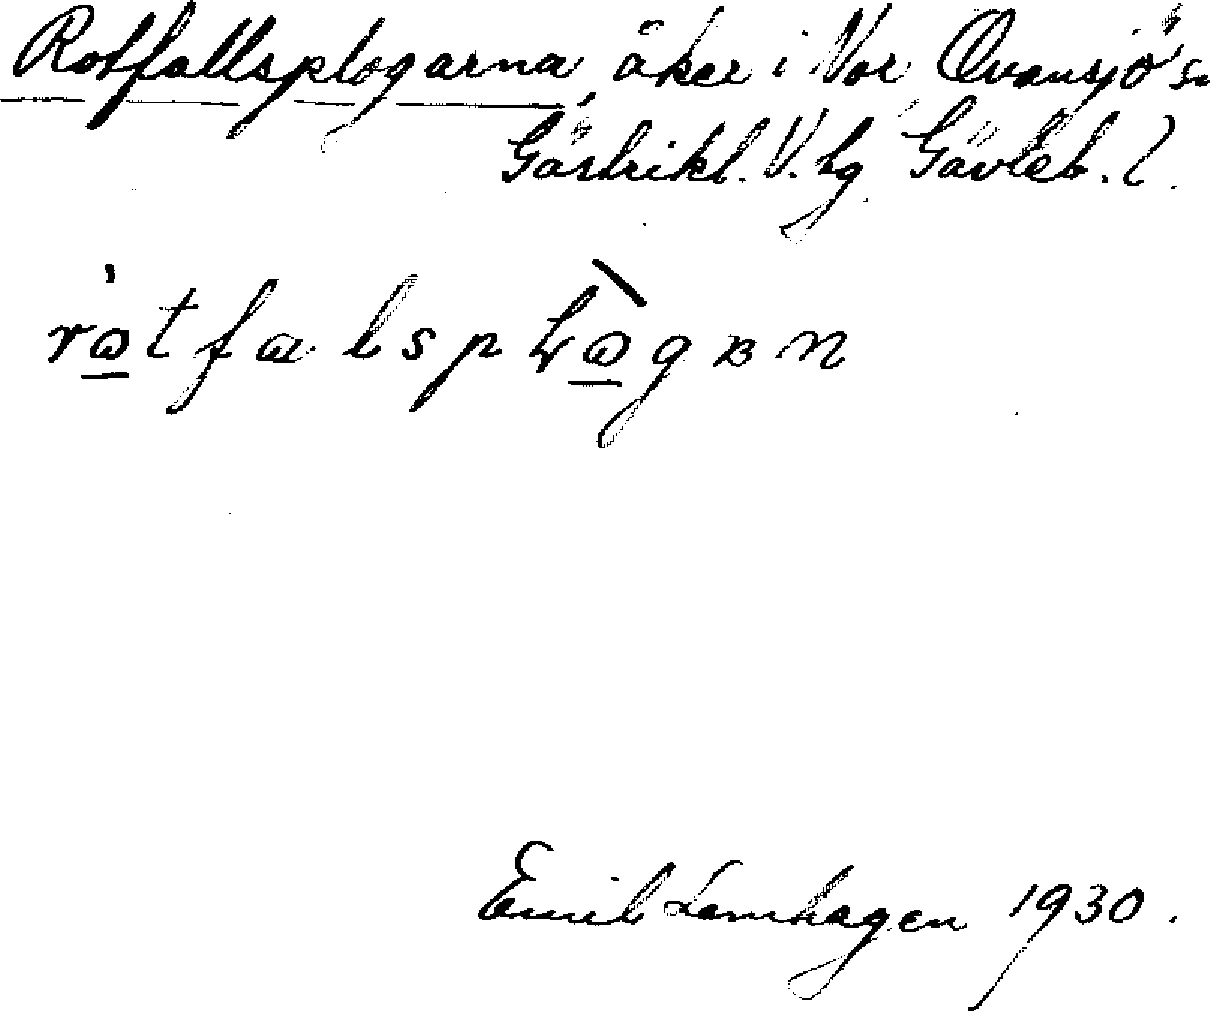 Rotfallsplogarna, åker i Vor, Ovansjö s.
Gästrikl. V. tg Gävleb. l.
rɷ̀tfalsplɷ̀gɐn
Emil Lamhagen 1930.